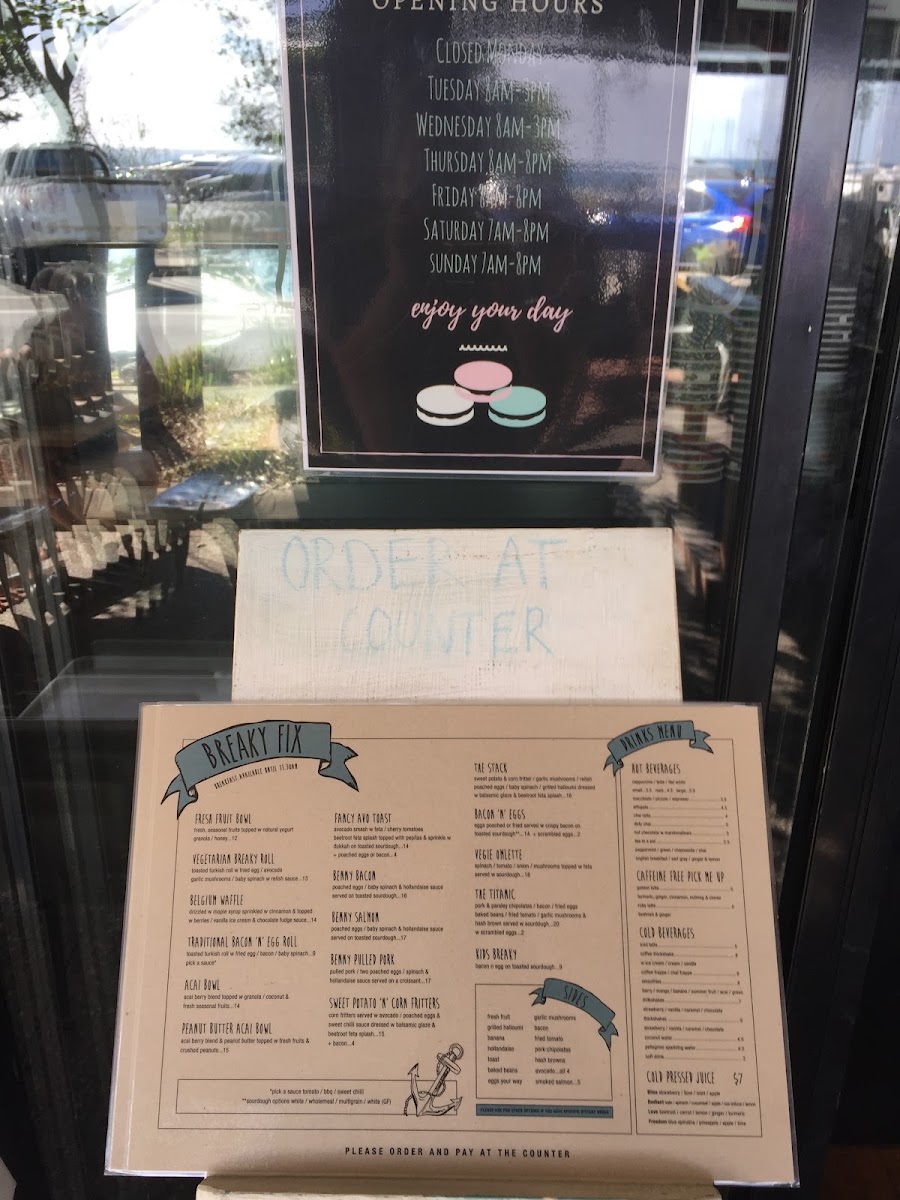 OPENING HOURS
CLOSED MONDAY
TUESDAY 8AM-3PM
WEDNESDAY 8AM-3PM
THURSDAY 8AM-8PM
FRIDAY 8AM-8PM
SATURDAY 7AM-8PM
SUNDAY 7AM-8PM
enjoy your day
ORDER AT
COUNTER
BREAKY FIX
BREAKFAST AVAILABLE UNTIL 11.30AM
FRESH FRUIT BOWL
fresh, seasonal fruits topped w natural yogurt
granola / honey...12
VEGETARIAN BREAKY ROLL
toasted turkish roll w fried egg / avocado
garlic mushrooms / baby spinach w relish sauce...13
BELGIUM WAFFLE
drizzled w maple syrup sprinkled w cinnamon & topped
w berries / vanilla ice cream & chocolate fudge sauce...14
TRADITIONAL BACON 'N' EGG ROLL
toasted turkish roll w fried egg / bacon / baby spinach...9
pick a sauce*
ACAI BOWL
acai berry blend topped w granola / coconut &
fresh seasonal fruits...14
PEANUT BUTTER ACAI BOWL
acai berry blend & peanut butter topped w fresh fruits &
crushed peanuts...15
FANCY AVO TOAST
avocado smash w feta / cherry tomatoes
beetroot feta splash topped with pepitas & sprinkle w
dukkah on toasted sourdough...14
+ poached eggs or bacon...4
BENNY BACON
poached eggs / baby spinach & hollandaise sauce
served on toasted sourdough...16
BENNY SALMON
poached eggs / baby spinach & hollandaise sauce
served on toasted sourdough...17
BENNY PULLED PORK
pulled pork / two poached eggs / spinach &
hollandaise sauce served on a croissant...17
SWEET POTATO 'N' CORN FRITTERS
corn fritters served w avocado / poached eggs &
sweet chilli sauce dressed w balsamic glaze &
beetroot feta splash...15
+ bacon...4
THE STACK
sweet potato & corn fritter / garlic mushrooms / relish
poached eggs / baby spinach / grilled haloumi dressed
w balsamic glaze & beetroot feta splash...16
BACON 'N' EGGS
eggs poached or fried served w crispy bacon on
toasted sourdough**...14 + scrambled eggs...2
VEGIE OMLETTE
spinach / tomato / onion / mushrooms topped w feta
served w toasted sourdough...18
THE TITANIC
pork & parsley chipolatas / bacon / fried eggs
baked beans / fried tomato / garlic mushrooms &
hash brown served w sourdough...20
w scrambled eggs...2
KIDS BREAKY
bacon n egg on toasted sourdough...9
SIDES
fresh fruit
grilled haloumi
banana
hollandaise
toast
baked beans
eggs your way
garlic mushrooms
bacon
fried tomato
pork chipolatas
hash browns
avocado...all 4
smoked salmon...5
*pick a sauce tomato / bbq / sweet chilli
**sourdough options white / wholemeal / multigrain / white (GF)
DRINKS MENU
HOT BEVERAGES
cappuccino / latte / flat white
CAFFEINE FREE PICK ME UP
turmeric, ginger, cinnamon, nutmeg & cloves
beetroot & ginger
COLD BEVERAGES
w ice cream / cream / vanilla
coffee frappe / chai frappe
smoothies
milkshakes
strawberry / vanilla / caramel / chocolate
thickshakes
strawberry / vanilla / caramel / chocolate
coconut water
soft drink
COLD PRESSED JUICE $7
PLEASE ORDER AND PAY AT THE COUNTER